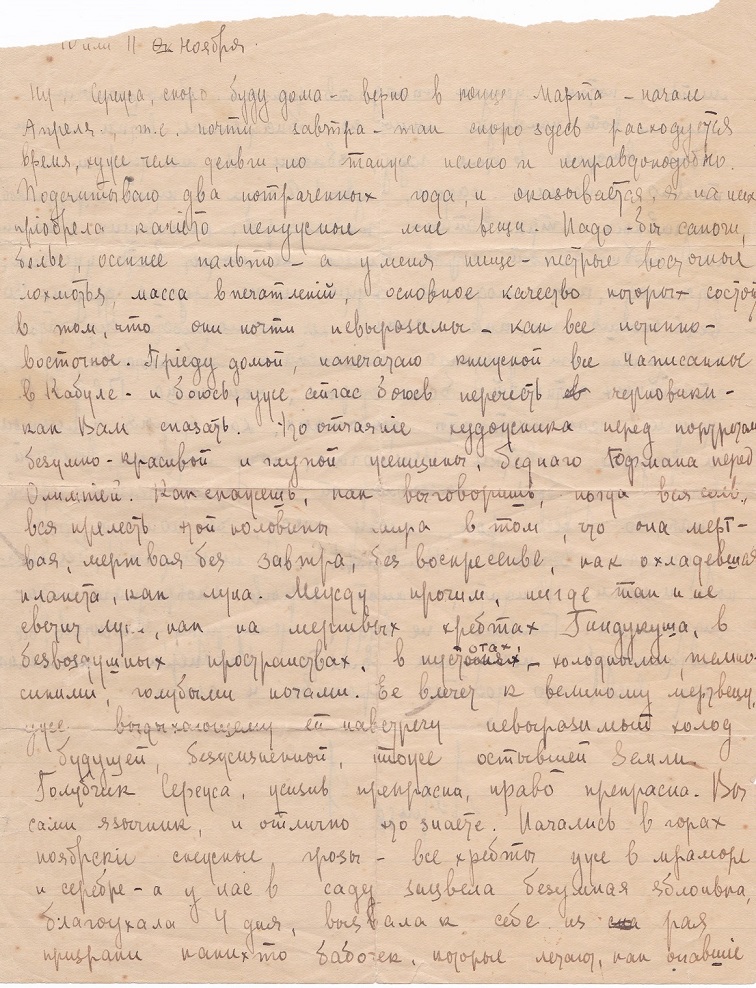 10 или 11 Ок Ноября.
Ну, Сережа, скоро буду дома - верно в конце Марта - начале
Апреля, т.е. почти завтра - так скоро здесь расходуется
время, хуже чем деньги, но также нелепо и неправдоподобно.
Подсчитываю два потраченных года, и оказывается, я на них
пріобрела какіе-то ненужные мне вещи. Надо-бы сапоги,
белье, осеннее пальто - а у меня нище-пестрые восточные
лохмотья, масса впечатленій, основное качество которых состоит
в том, что они почти невыразимы - как все истинно-
восточное. Пріеду домой, напечатаю книжкой все написанное
в Кабуле - и боюсь, уже сейчас боюсь перечесть черновики -
как Вам сказать. Это отчаяніе художника перед портретом
безумно-красивой и глупой женщины, беднаго Гофмана перед
Олимпіей. Как скажешь, как выговоришь, когда вся
вся прелесть этой половины мира в том, что она мерт-
вая, мертвая без завтра, без воскресенье, как охладевшая
планета, как луна. Между прочим, нигде так и не
светит луна, как на мертвых хребтах Гиндукуша, в
безвоздушных пространствах, в пустотах, - холодными, темно-
синими, голубыми ночами. Ее влечет к великому мертвецу,
уже выдыхающему ей навстречу невыразимый холод
будущей, безжизненной, тоже остывшей Земли.
Голубчик Сережа, жизнь прекрасна, право прекрасна. Вы
сами язычник, и отлично это знаете. Начались в горах
ноябрскіе снежные грозы - все хребты уже в мраморе
и серебре - а у нас в саду зацвела безумная яблонька,
благоухала 4 дня, вызвала к себе из рая
призраки каких то бабочек, которые летают, как опавшіе